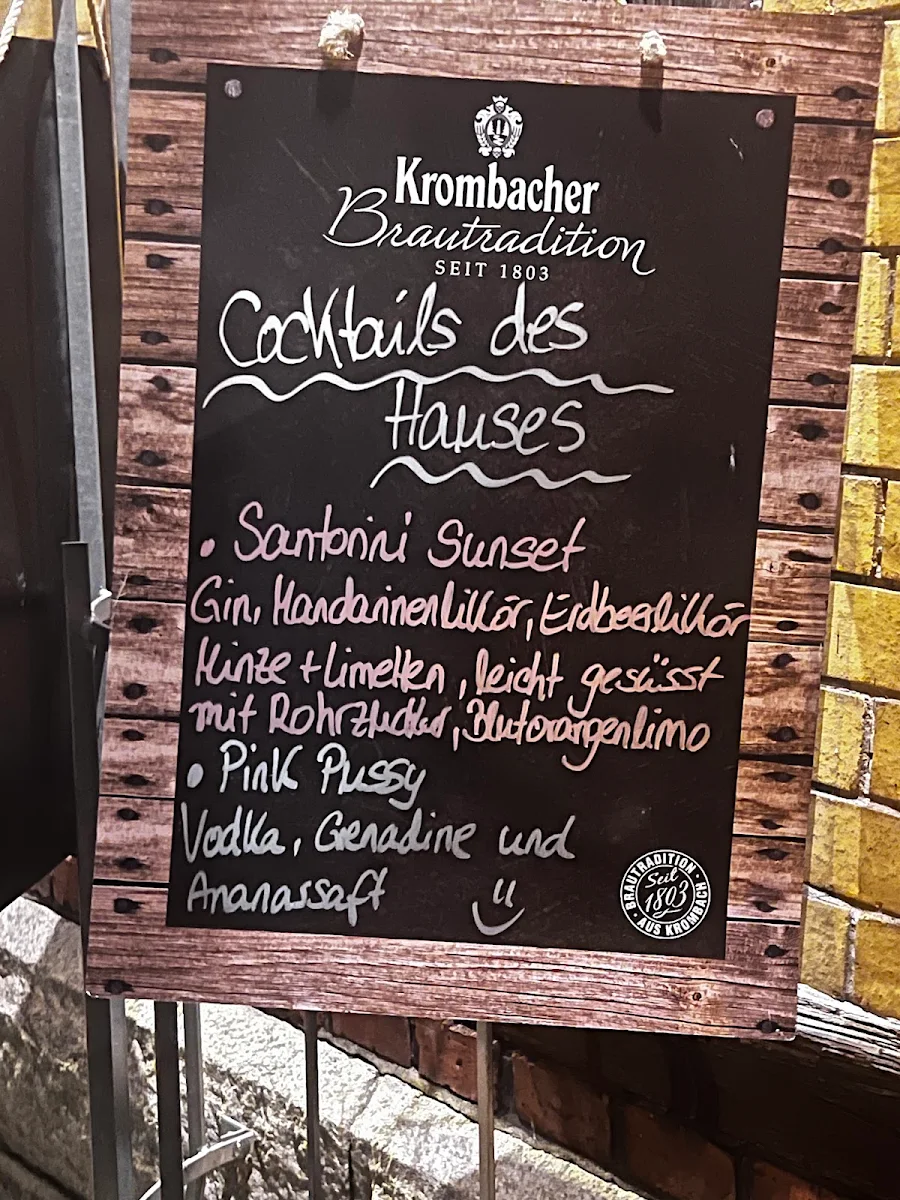 Krombacher
Brautradition
SEIT 1803
Cocktails des
Hauses
• Santorini Sunset
Gin, Mandarinenlikör, Erdbeerlikör
Minze + Limetten, leicht gesüsst
mit Rohrzucker, Blutorangenlimo
• Pink Pussy
Vodka, Grenadine und
Ananassaft
BRAUTRADITION
Seit
1803
AUS KROMBACH